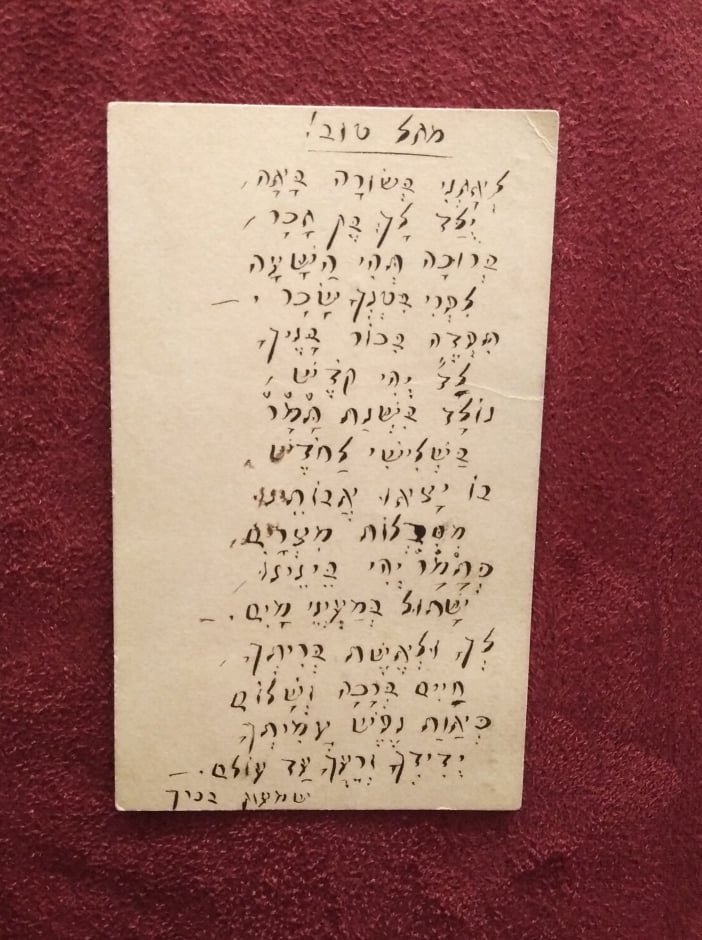 מזל טוב!
לְאָזְנִי בְּשׂוֹרָה בָּאָה,
יֻלַּד לָךְ בֵּן זָכָר,
בְּרוּכָה תְּהִי הַשָּׁעָה
לִפְרִי בִטְנְךָ שָׂכָר. –
תִּפְדֶּה בְּכוֹר בָּנֶיךָ,
לַד יְהִי קֹדֶשׁ,
נוֹלָד בִּשְׁנַת תָּמָר
בַּשְּׁלִישִׁי לַחֹדֶשׁ
בּוֹ יָצְאוּ אֲבוֹתֵינוּ
מִסִּבְלוֹת מִצְרַיִם,
כְּתָמָר יְהִי בֵּינֵינוּ,
שָׁתוּל בְּמַעְיְנֵי מָיִם. –
לְךָ וּלְאֵשֶׁת בְּרִיתְךָ,
חַיִּים בְּרָכָה וְשָׁלוֹם
כְּאַוַּת נֶפֶשׁ עֲמִיתְךָ,
יְדִידְךָ וְרֵעֲךָ עַד עוֹלָם. –
שמעון